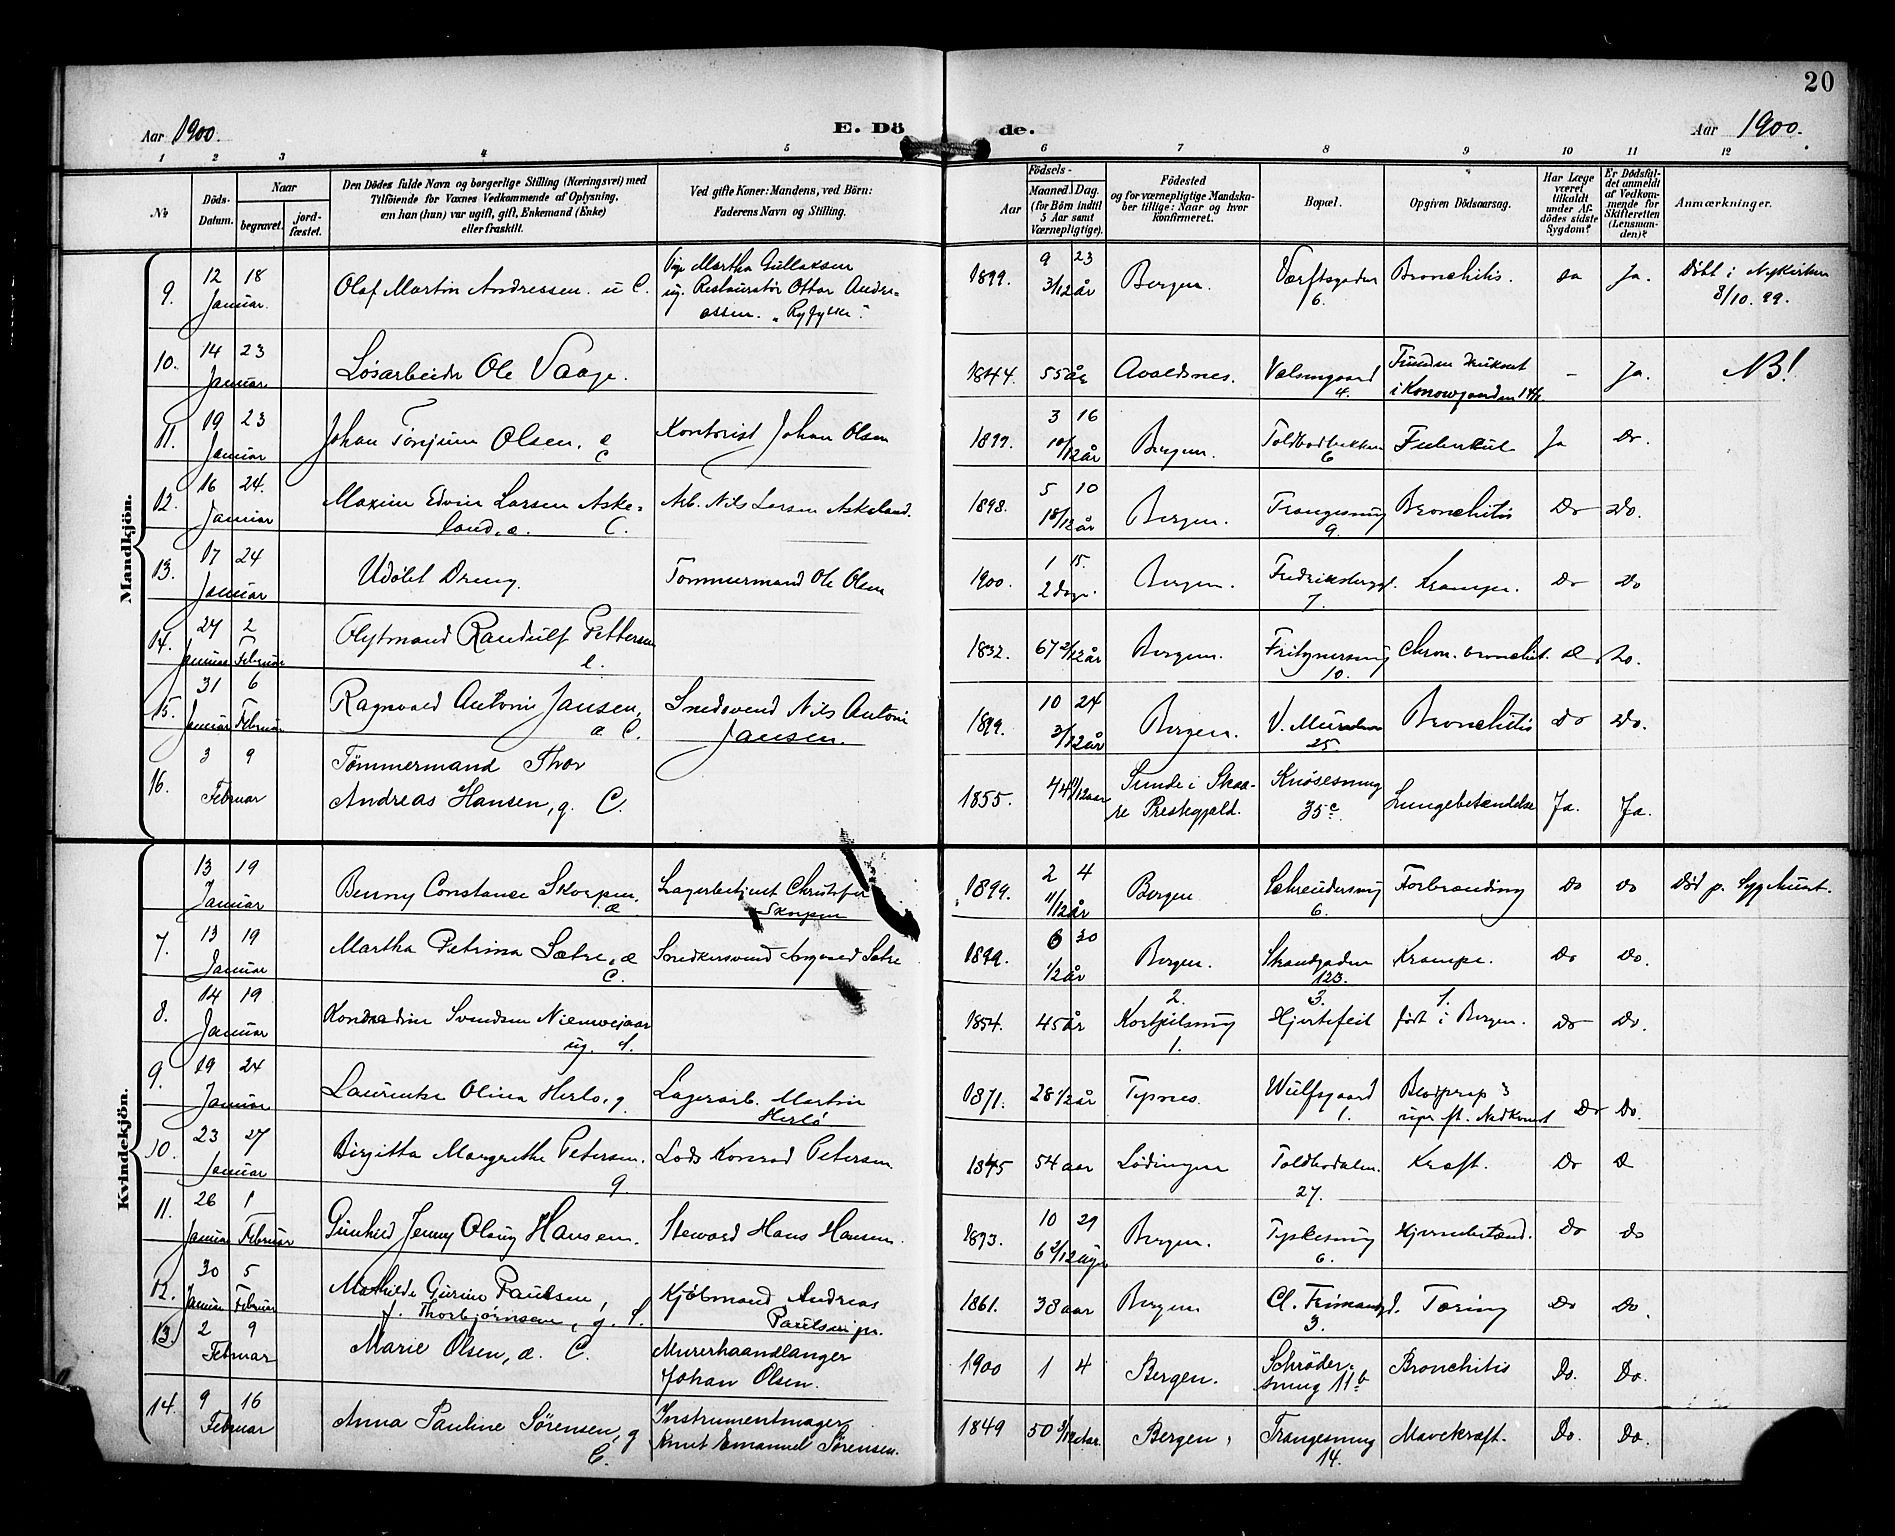 20
Aar 1900.
E. Dö de.
Aar 1900.
1 2 3 4 5 6 7 8 9 10 11 12
№
Döds-
Datum.
Naar
begravet.
jord-
fæstet.
Den Dödes fulde Navn og borgerlige Stilling (Næringsvei) med
Tilföiende for Voxnes Vedkommende af Oplysning,
om han (hun) var ugift, gift, Enkemand (Enke)
eller fraskilt.
Ved gifte Koner: Mandens, ved Börn:
Faderens Navn og Stilling.
Födsels-
Aar
Maaned. Dag.
(for Börn indtil
5 Aar samt
Værnepligtige).
Födested
og for værnepligtige Mandska-
ber tillige: Naar og hvor
konfirmeret.
Bopæl.
Opgiven Dödsaarsag.
Har Læge
været
tilkaldt
under Af-
dödes sidste
Sygdom?
Er Dödsfal-
det anmeldt
af Vedkom-
mende for
Skifteretten
(Lensman-
den)?
Anmærkninger.
Mandkjön.
9. 12 18 Januar. Olaf Martin Andressen. u C.
Pige Martha Gullaksen
ug. Restauratør Ottar Andre-
assen. "Ryfylke".
1899. 9 23 3/12 år Bergen. Værftsgaden 6. Bronchitis. Ja Ja. Døbt i Nykirken
8/10. 99.
10. 14 23 Januar Løsarbeider Ole Vaage.
1844. 55 år Avaldsnes. Valsmgaard 4. Funden druknet
i Konowgaarden 14/1. – Ja. NB!
11. 19 23 Januar Johan Tønjum Olsen. C Kontorist Johan Olsen
3 16 10/12 år Bergen. Toldbodbakken 6 Tuberkul Ja Do.
12. 16 24. Januar Maxim Edvin Larsen Aske-
land. æ. C. Arb. Nils Larsen Askeland.
1898. 5 10 18/12 år Bergen. Trangesmug 9. Bronchitis Do Do.
13. 17 24 Januar Udøbt Dreng Tømmermand Ole Olsen
1900. 1 15. 2 Dage. Bergen. Fredriksbergg. 7. Krampe. Do Do
14. 27 2 Januar Februar Flytmand Randulf Pettersen
e.
1832. 67 2/12 år Bergen. Fritznersmug 10. Chron. bronchit. Do.
15. 31 6 Januar Februar Ragnvald Antoni Jansen,
æ C. Smedsvend Nils Antoni
Jansen.
1899. 10 24 3/12 år Bergen. V. Muralm 25 Bronchitis Do Do.
16. 3 9 Februar Tømmermand Thor
Andreas Hansen, g. C.
1855. 44 /12 aar Sunde i Skaa-
re Prestegjeld. Knøsesmug
35 c. Lungebetændelse Ja. Ja.
Kvindekjön.
13 19 Januar Benny Constance Skorpen.
æ Lagerbetjent Christofer
Skorpen
1899. 2 4 11/12 år Bergen Schreudersmug 6. Forbrænding Do Do Død p. Sygehuset.
7. 13 19 Januar Martha Petrina Sætre, æ
C. Snedkersvend Sætre
1899. 6 30 1/2 år Bergen. Strandgaden 123. Krampe. Do Do.
8. 14 19 Januar Kondradine Svendsen Niemvejaar
ug. d.
1854. 45 år 2. Kortpilsmug 1. 3. Hjertefeil 1. født i Bergen. Do Do.
9. 19 24 Januar Laurentse Olina Herlo, g Lagerarb. Martin
Herlö
1871. 28 1/2 år Typnes. Wulfsgaard 1. Blodprop 3
uger ft. Nedkomst Do Do.
10. 23 27 Januar Birgitta Margrethe Petersen.
g. Lods Konrad Petersen
1845 54 aar Lødingen Toldbodalm. 27. Kræft. Do D
11. 26 1 Januar Februar Gunhild Jenny Olsug Hansen. Steward Hans Hansen.
1893. 10 29 6 2/12 Bergen. Tyskesmug 6. Hjernebetænd. Do Do
12. 30 5 Januar Februar Mathilde Gurine Paulsen,
f. Thorbjørnsen, g. C. Kjøbmand Andreas
Paulsen jr.
1861. 38 aar Bergen Cl. Frimansgd. 3. Tæring Do Do.
13. 2 9 Februar Marie Olsen, æ. C. Murerhaandlanger
Johan Olsen.
1900 1 4 Bergen. Schrøder-
smug 11 b Bronchitis Do. Do.
14. 9 16 Februar Anna Pauline Sørensen, g
C. Instrumentmager
Knut Emanuel Sørensen.
1849 50 /12 Aar. Bergen, Trangesmug 14. Mavekræft. Do. Do.